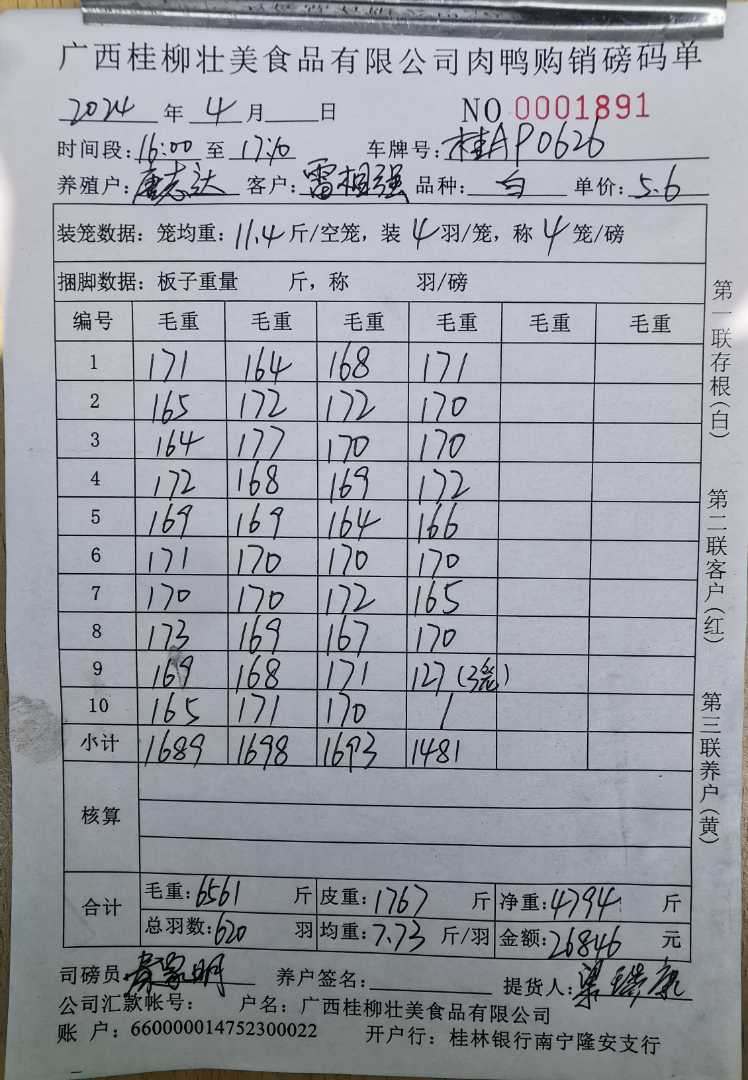 广西桂柳壮美食品有限公司肉鸭购销磅码单
2024 年 4 月 日 NO 0001891
时间段: 16:00 至 17:10 车牌号: 桂AP0626
养殖户: 唐志达 客户: 雷相强 品种: 白 单价: 5.6
装笼数据: 笼均重: 11.4 斤/空笼, 装 4 羽/笼, 称 4 笼/磅
捆脚数据: 板子重量 斤, 称 羽/磅
编号 毛重 毛重 毛重 毛重 毛重 毛重
1 171 164 168 171
2 165 172 172 170
3 164 177 170 170
4 172 168 169 172
5 169 169 164 166
6 171 170 170 170
7 170 170 172 165
8 173 169 167 170
9 169 168 171 127 (3笼)
10 165 171 170 /
小计 1689 1698 1693 1481
核算
合计 毛重: 6561 斤 皮重: 1767 斤 净重: 4794 斤
总羽数: 620 羽 均重: 7.73 斤/羽 金额: 26846 元
司磅员 养户签名: 提货人:
公司汇款帐号: 户名: 广西桂柳壮美食品有限公司
账 户: 660000014752300022 开户行: 桂林银行南宁隆安支行
第一联存根(白) 第二联客户(红) 第三联养户(黄)